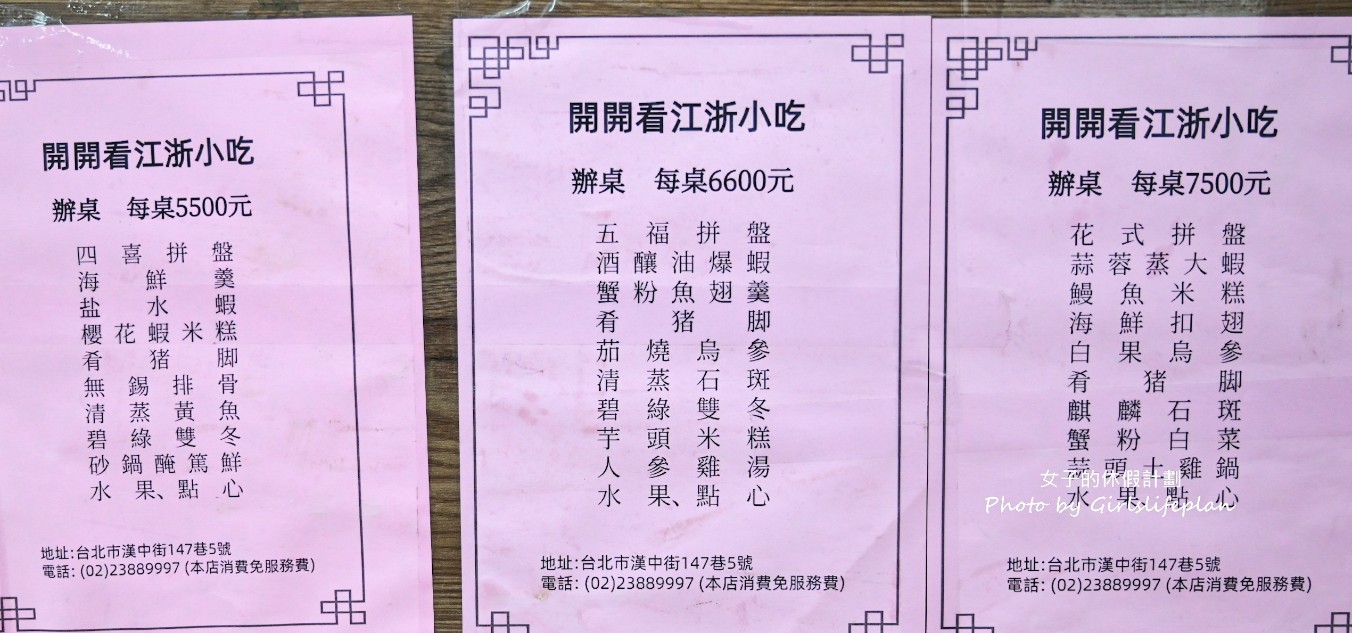 開開看江浙小吃
辦桌 每桌5500元
四喜拼盤
海鮮羹
盐水蝦
櫻花蝦米糕
肴猪脚
無錫排骨
清蒸黃魚
碧綠雙冬
砂鍋醃篤鮮
水果、點心
地址:台北市漢中街147巷5號
電話: (02)23889997 (本店消費免服務費)
開開看江浙小吃
辦桌 每桌6600元
五福拼盤
酒釀油爆蝦
蟹粉魚翅羹
肴猪脚
茄燒烏參
清蒸石斑
碧綠雙冬
芋頭米糕
人參雞湯
水果、點心
地址:台北市漢中街147巷5號
電話: (02)23889997 (本店消費免服務費)
開開看江浙小吃
辦桌 每桌7500元
花式拼盤
蒜蓉蒸大蝦
鰻魚米糕
海鮮扣翅
白果烏參
肴猪脚
麒麟石斑
蟹粉白菜
蒜頭土雞鍋
水果、點心
女子的休假計劃
Photo by Girlslifeplan
地址:台北市漢中街147巷5號
電話: (02)23889997 (本店消費免服務費)